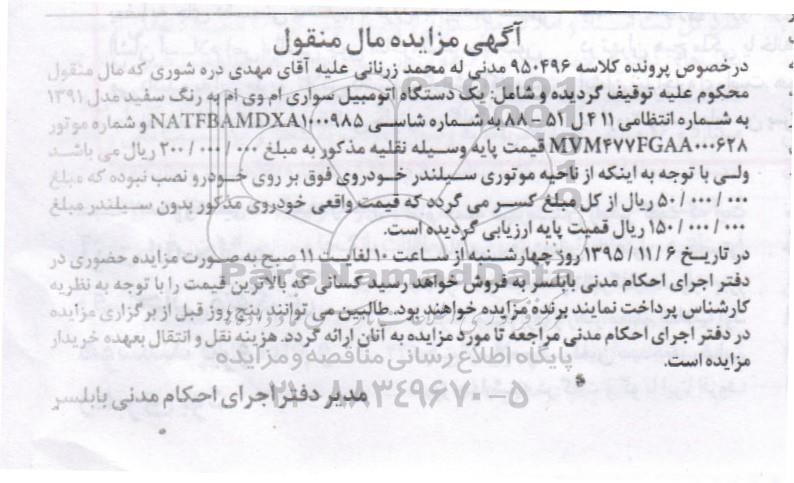 آگهی مزایده مال منقول
درخصوص پرونده کلاسه ۹۵۰۴۹۶ مدنی له محمد زربانی علیه آقای مهدی دره شوری که مال منقول
محکوم علیه توقیف گردیده و شامل: یک دستگاه اتومبیل سواری ام وی ام به رنگ سفید مدل ۱۳۹۱
به شماره انتظامی ۴۱۱ ل ۵۱ – ۸۸ به شماره شاسی NATFBAMDXA۱۰۰۰۹۸۵ و شماره موتور
MVM۴۷۷FGAA۰۰۰۶۲۸ قیمت پایه وسیله نقلیه مذکور به مبلغ ۲۰۰/۰۰۰/۰۰۰ ریال می باشد
ولی با توجه به اینکه از ناحیه موتوری سیلندر خودروی فوق بر روی خودرو نصب نبوده که مبلغ
۵۰/۰۰۰/۰۰۰ ریال از کل مبلغ کسر می گردد که قیمت واقعی خودروی مذکور بدون سیلندر مبلغ
۱۵۰/۰۰۰/۰۰۰ ریال قمیت پایه ارزیابی گردیده است.
در تاریخ ۱۳۹۵/۱۱/۶ روز چهارشنبه از ساعت ۱۰ لغایت ۱۱ صبح به صورت مزایده حضوری در
دفتر اجرای احکام مدنی بابلسر به فروش خواهد رسید کسانی که بالاترین قیمت را با توجه به نظریه
کارشناس پرداخت نمایند برنده مزایده خواهند بود. طالبین می توانند پنج روز قبل از برگزاری مزایده
در دفتر اجرای احکام مدنی مراجعه تا مورد مزایده به آنان ارائه گردد. هزینه نقل و انتقال بعهده خریدار
مزایده است.
پایگاه اطلاع رسانی مناقصه و مزایده
مدیر دفتر اجرای احکام مدنی بابلسر
۰۲۱-۸۸۳۴۹۶۷۰-۵
ParsNamadData